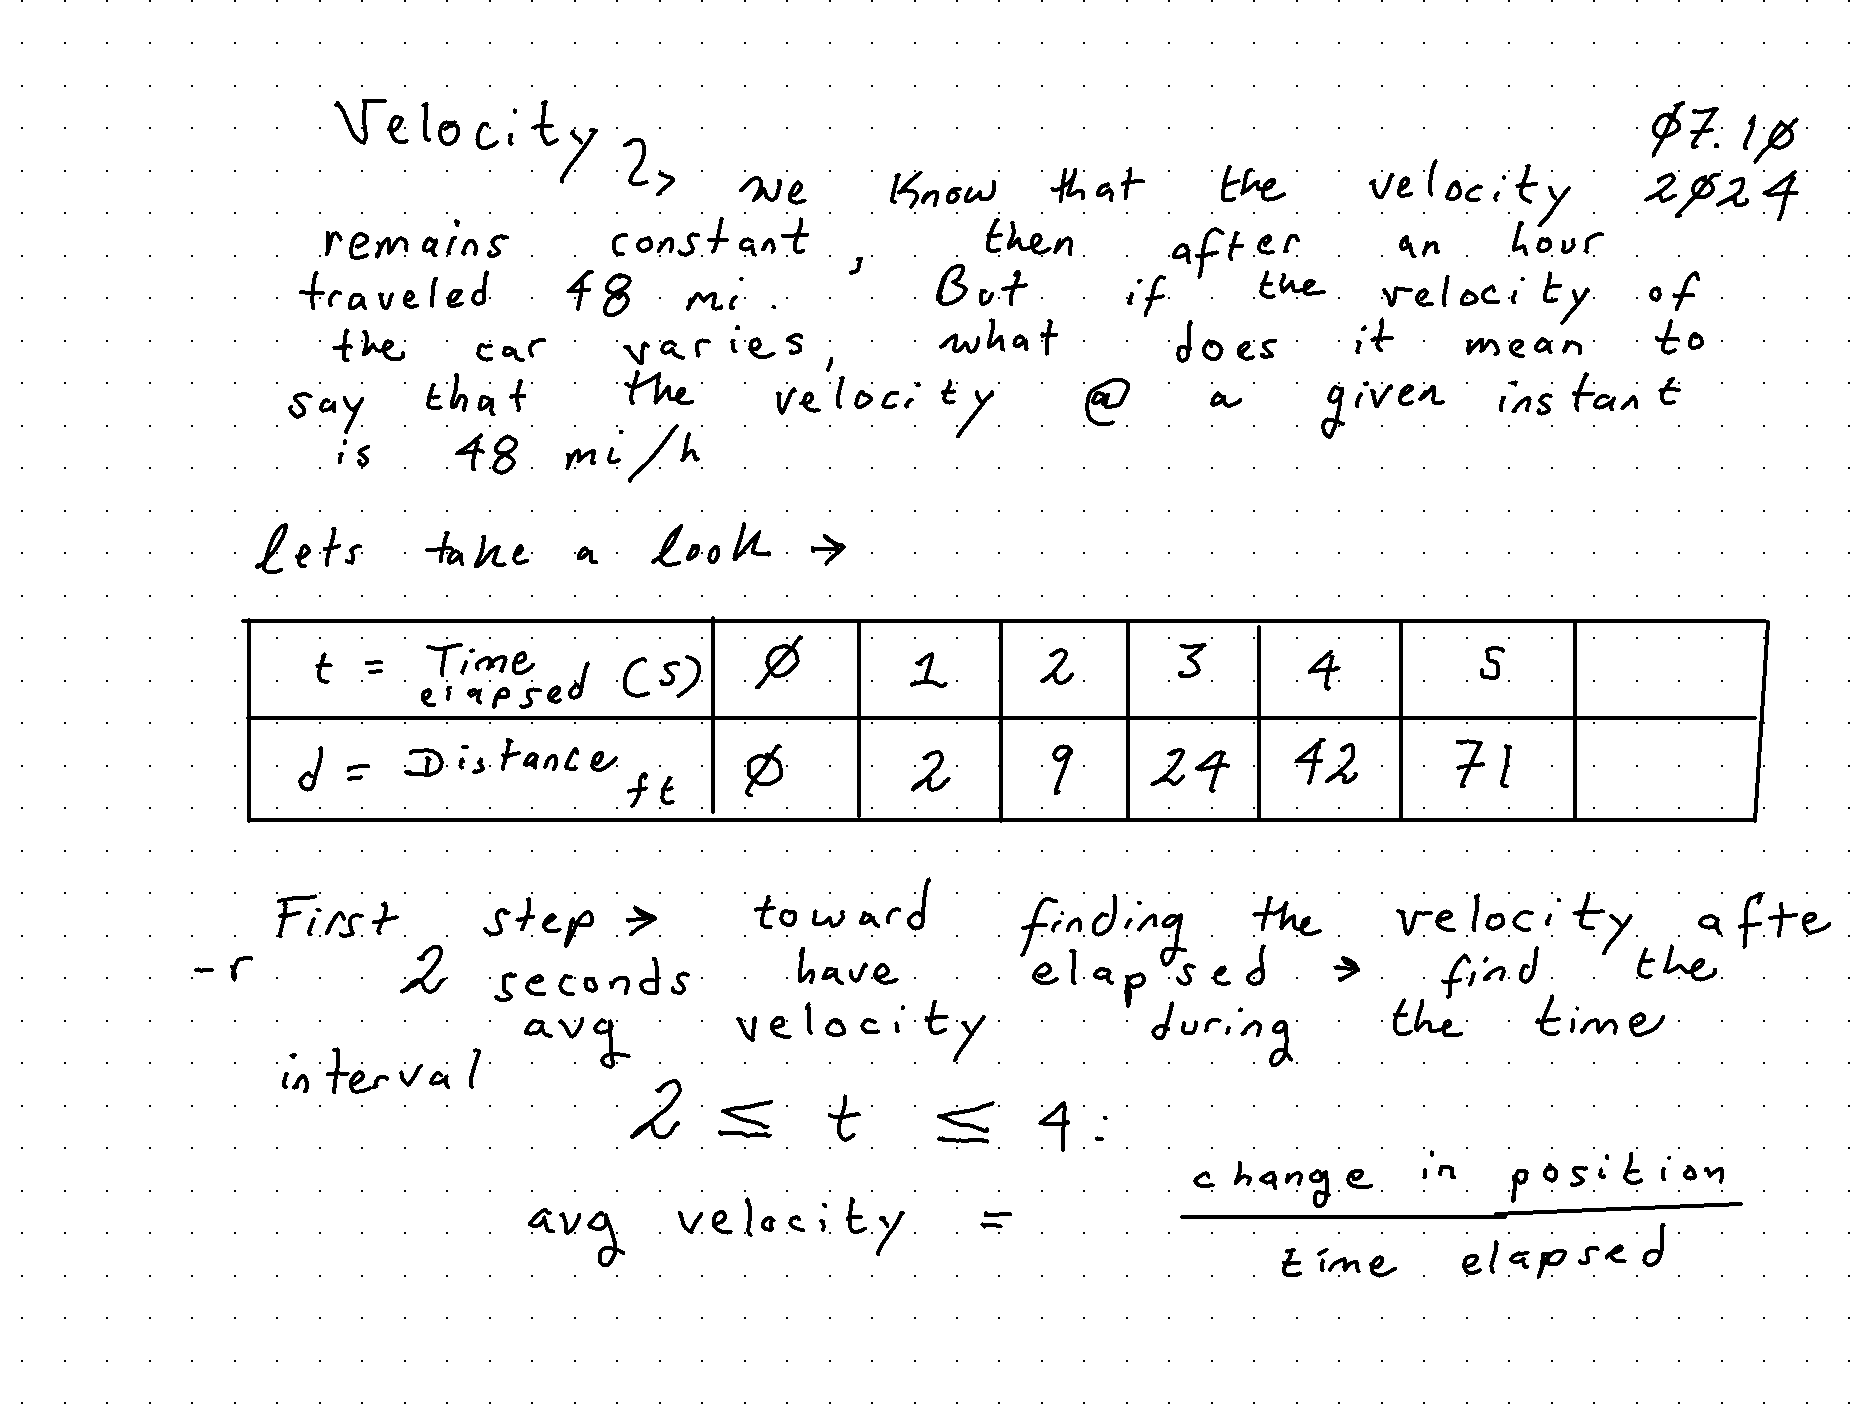 Velocity
Ø7.1Ø
2Ø24
we know that the velocity
remains constant, then after an hour
traveled 48 mi. But if the velocity of
the car varies, what does it mean to
say that the velocity @ a given instant
is 48 mi/h
lets take a look →
t = Time elapsed (s) Ø 1 2 3 4 5
d = Distance ft Ø 2 9 24 42 71
First step → toward finding the velocity afte
-r 2 seconds have elapsed → find the
avg velocity during the time
interval
2 ≤ t ≤ 4:
avg velocity = change in position
time elapsed